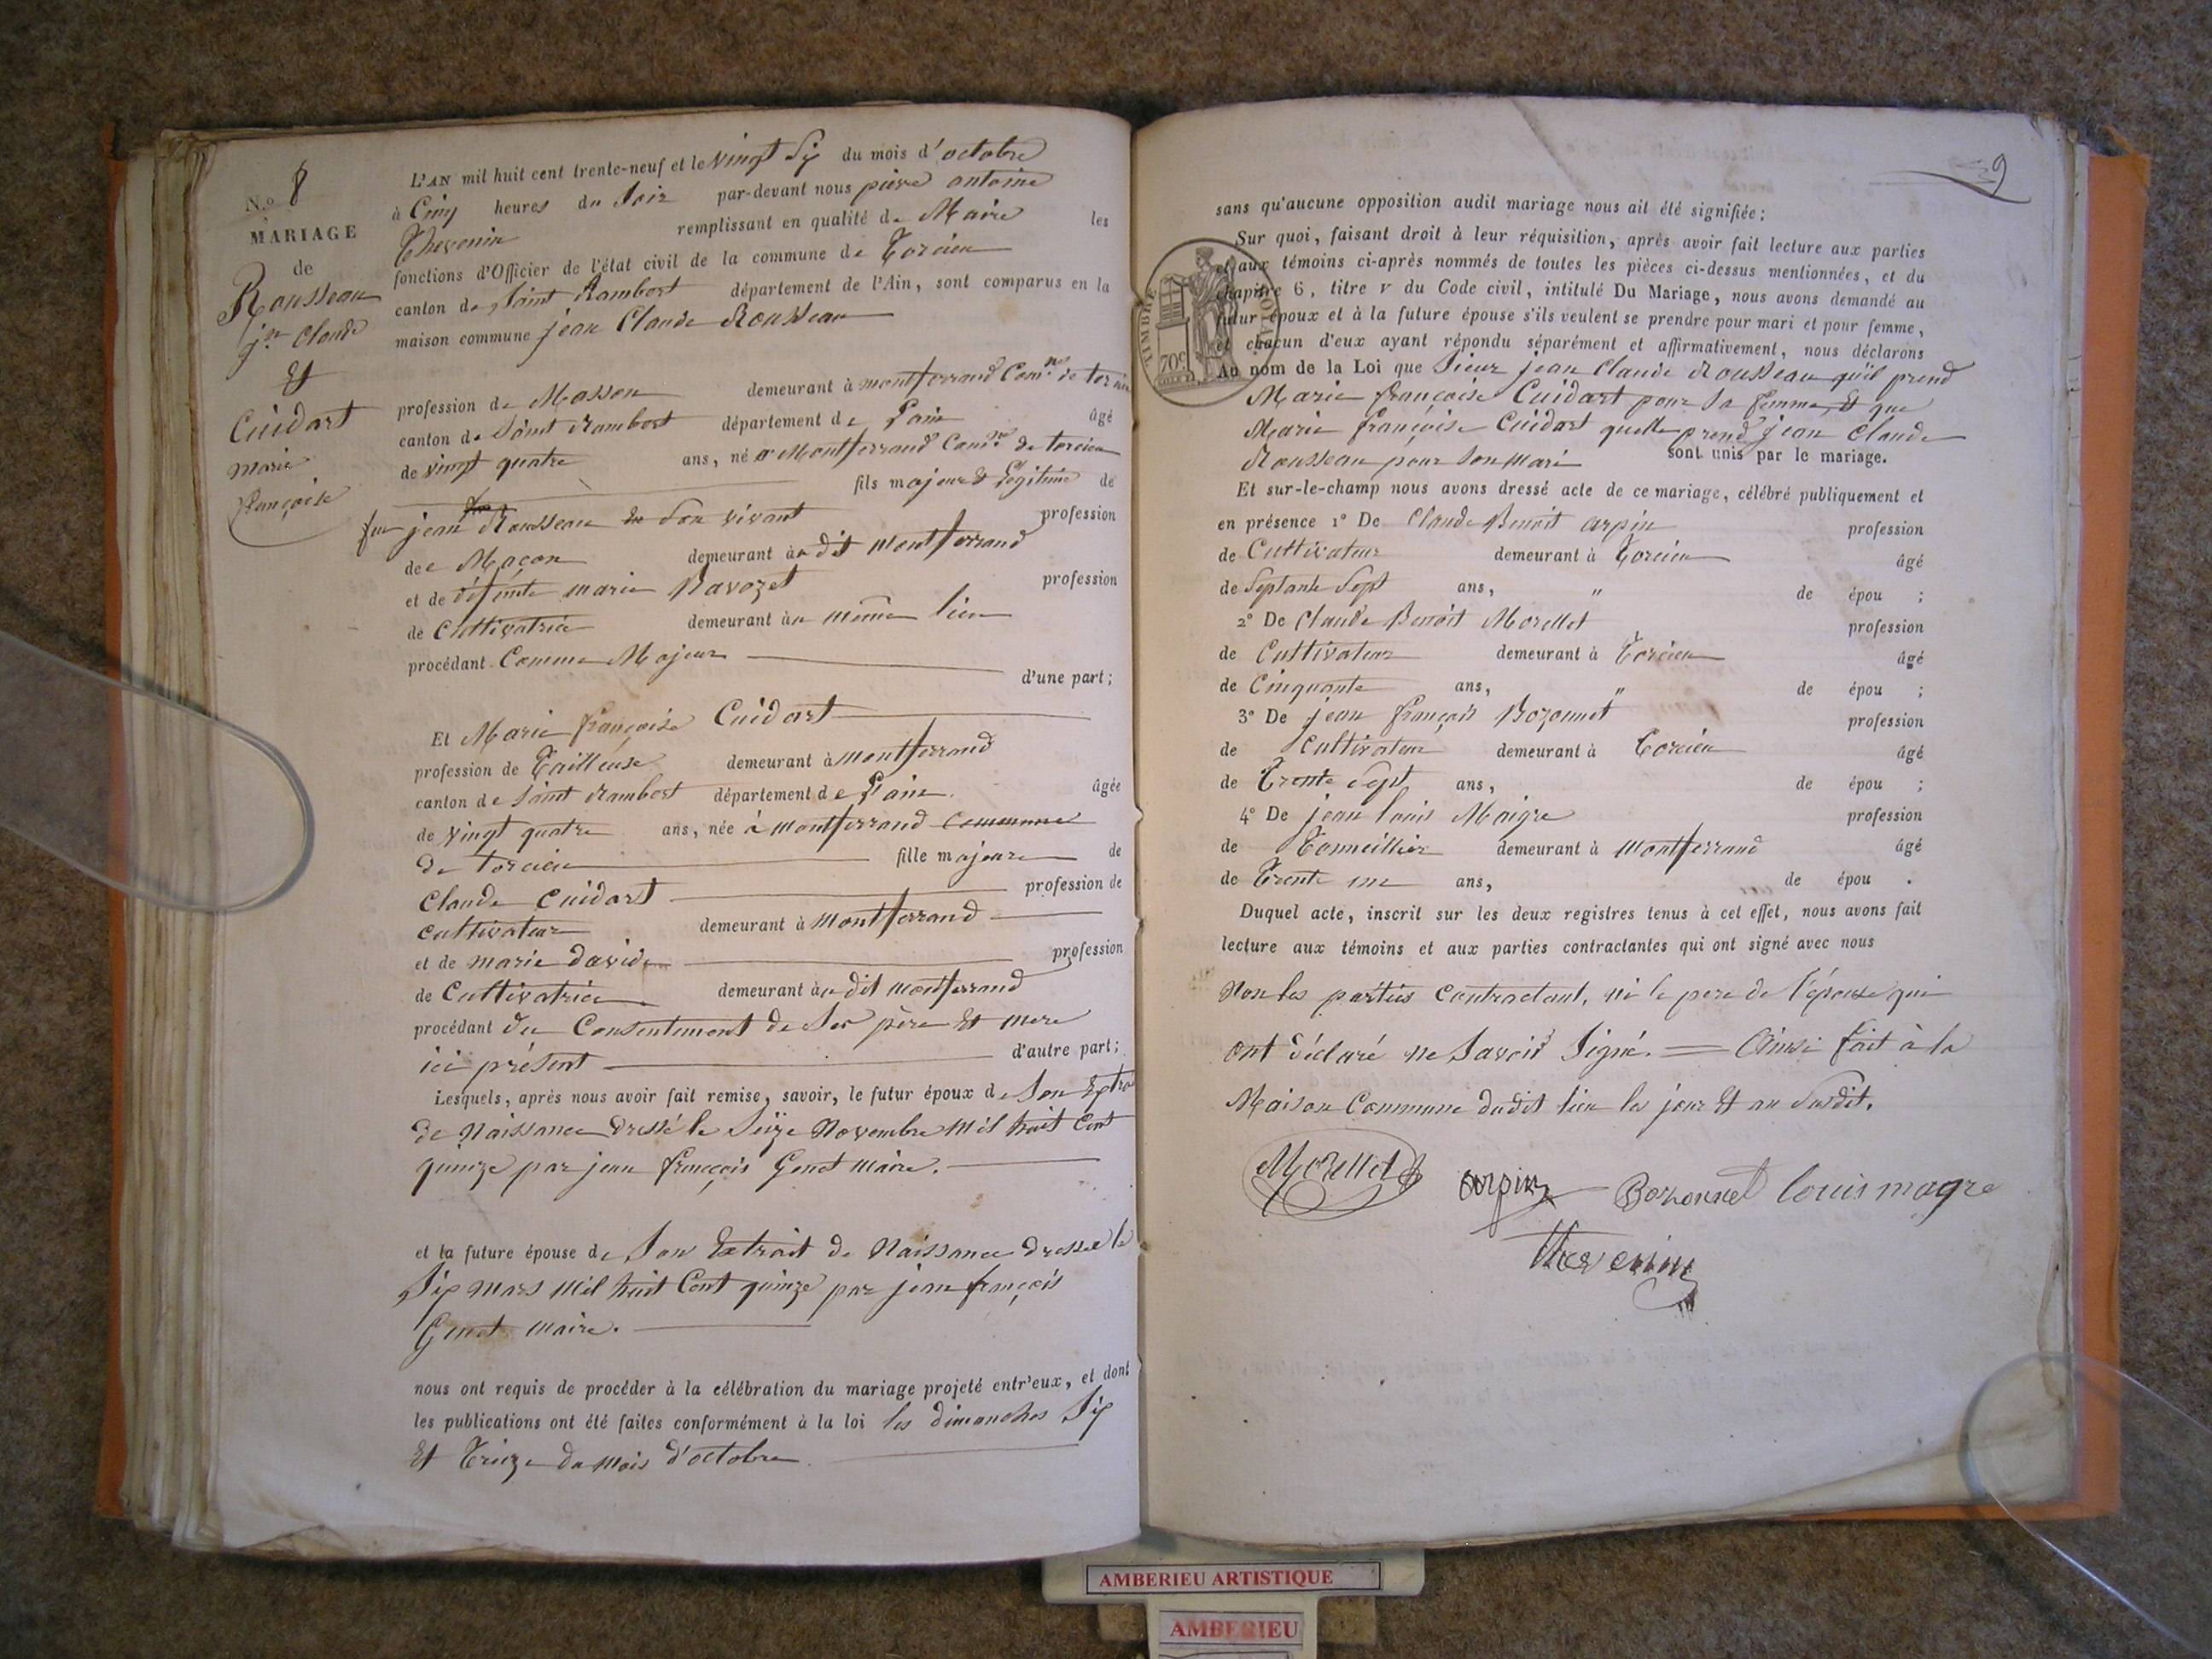 N.o 8
MARIAGE
de
Rousseau
jn Claude
Et
Cuidart
marie
françoise
L'AN mil huit cent trente-neuf et le vingt Six du mois d'octobre
à Cinq heures du Soir par-devant nous pierre antoine
Thevenin remplissant en qualité de Maire les
fonctions d'Officier de l'état civil de la commune de Torcieu
canton de Saint Rambert département de l'Ain, sont comparus en la
maison commune jean Claude Rousseau
profession de Masson demeurant à montferrand Comne de torcieu
canton de Saint Rambert département de l'ain âgé
de vingt quatre ans, né a Montferrand Comne de torcieu
fils majeur & légitime de
feu jean Rousseau En Son vivant profession
dee Maçon demeurant àu dit montferrand
et de défunte marie Ravozet profession
de Cultivatrice demeurant àu même lieu
procédant Comme Majeur d'une part;
Et Marie françoise Cuidart
profession de Tailleuse demeurant à montferrand
canton de Saint Rambert département de l'ain. âgée
de vingt quatre ans, née à montferrand commune
de torcieu fille majeure de
Claude Cuidart profession de
cultivateur demeurant à montferrand
et de marie david profession
de Cultivatrice demeurant àu dit montferrand
procédant du Consentement de Ses père Et mere
ici présent d'autre part;
Lesquels, après nous avoir fait remise, savoir, le futur époux de Son Extrai
de Naissance dressé le Seize Novembre Mil huit Cent
quinze par jean françois Genet Maire.
et la future épouse de Son Extrait de Naissance dressee le
Six mars Mil huit Cent quinze par jean françois
Genet Maire.
nous ont requis de procéder à la célébration du mariage projeté entr'eux, et dont
les publications ont été faites conformément à la loi les dimanches Six
Et Treize du mois d'octobre
9
sans qu'aucune opposition audit mariage nous ait été signifiée;
Sur quoi, faisant droit à leur réquisition, après avoir fait lecture aux parties
et aux témoins ci-après nommés de toutes les pièces ci-dessus mentionnées, et du
chapitre 6, titre v du Code civil, intitulé Du Mariage, nous avons demandé au
futur époux et à la future épouse s'ils veulent se prendre pour mari et pour femme,
et chacun d'eux ayant répondu séparément et affirmativement, nous déclarons
TIMBRE ROYAL
70c
Au nom de la Loi que Sieur jean Claude Rousseau qu'il prend
Marie françoise Cuidart pour Sa femme, Et que
Marie françoise Cuidart quelle prend jean Claude
Rousseau pour Son mari sont unis par le mariage.
Et sur-le-champ nous avons dressé acte de ce mariage, célébré publiquement et
en présence 1° De Claude Benoit arpin profession
de Cultivateur demeurant à Torcieu âgé
de Septante Sept ans, " de épou ;
2° De Claude Benoit Morellet profession
de Cultivateur demeurant à Torcieu âgé
de Cinquante ans, " de épou ;
3° De jean françois Bozonnet profession
de Cultivateur demeurant à Torcieu âgé
de Trente Sept ans, de épou ;
4° De jean louis Maigre profession
de Tonneillier demeurant à montferrand âgé
de Trente un ans, de épou .
Duquel acte, inscrit sur les deux registres tenus à cet effet, nous avons fait
lecture aux témoins et aux parties contractantes qui ont signé avec nous
Non les parties Contractant, ni le pere de l'épouse qui
ont déclaré ne Savoir Signé. = Ainsi fait à la
Maison Commune dudit lieu les jour Et an Susdit.
Morellet arpin Bozonnet louis magre
thevenin
AMBERIEU ARTISTIQUE
AMBERIEU